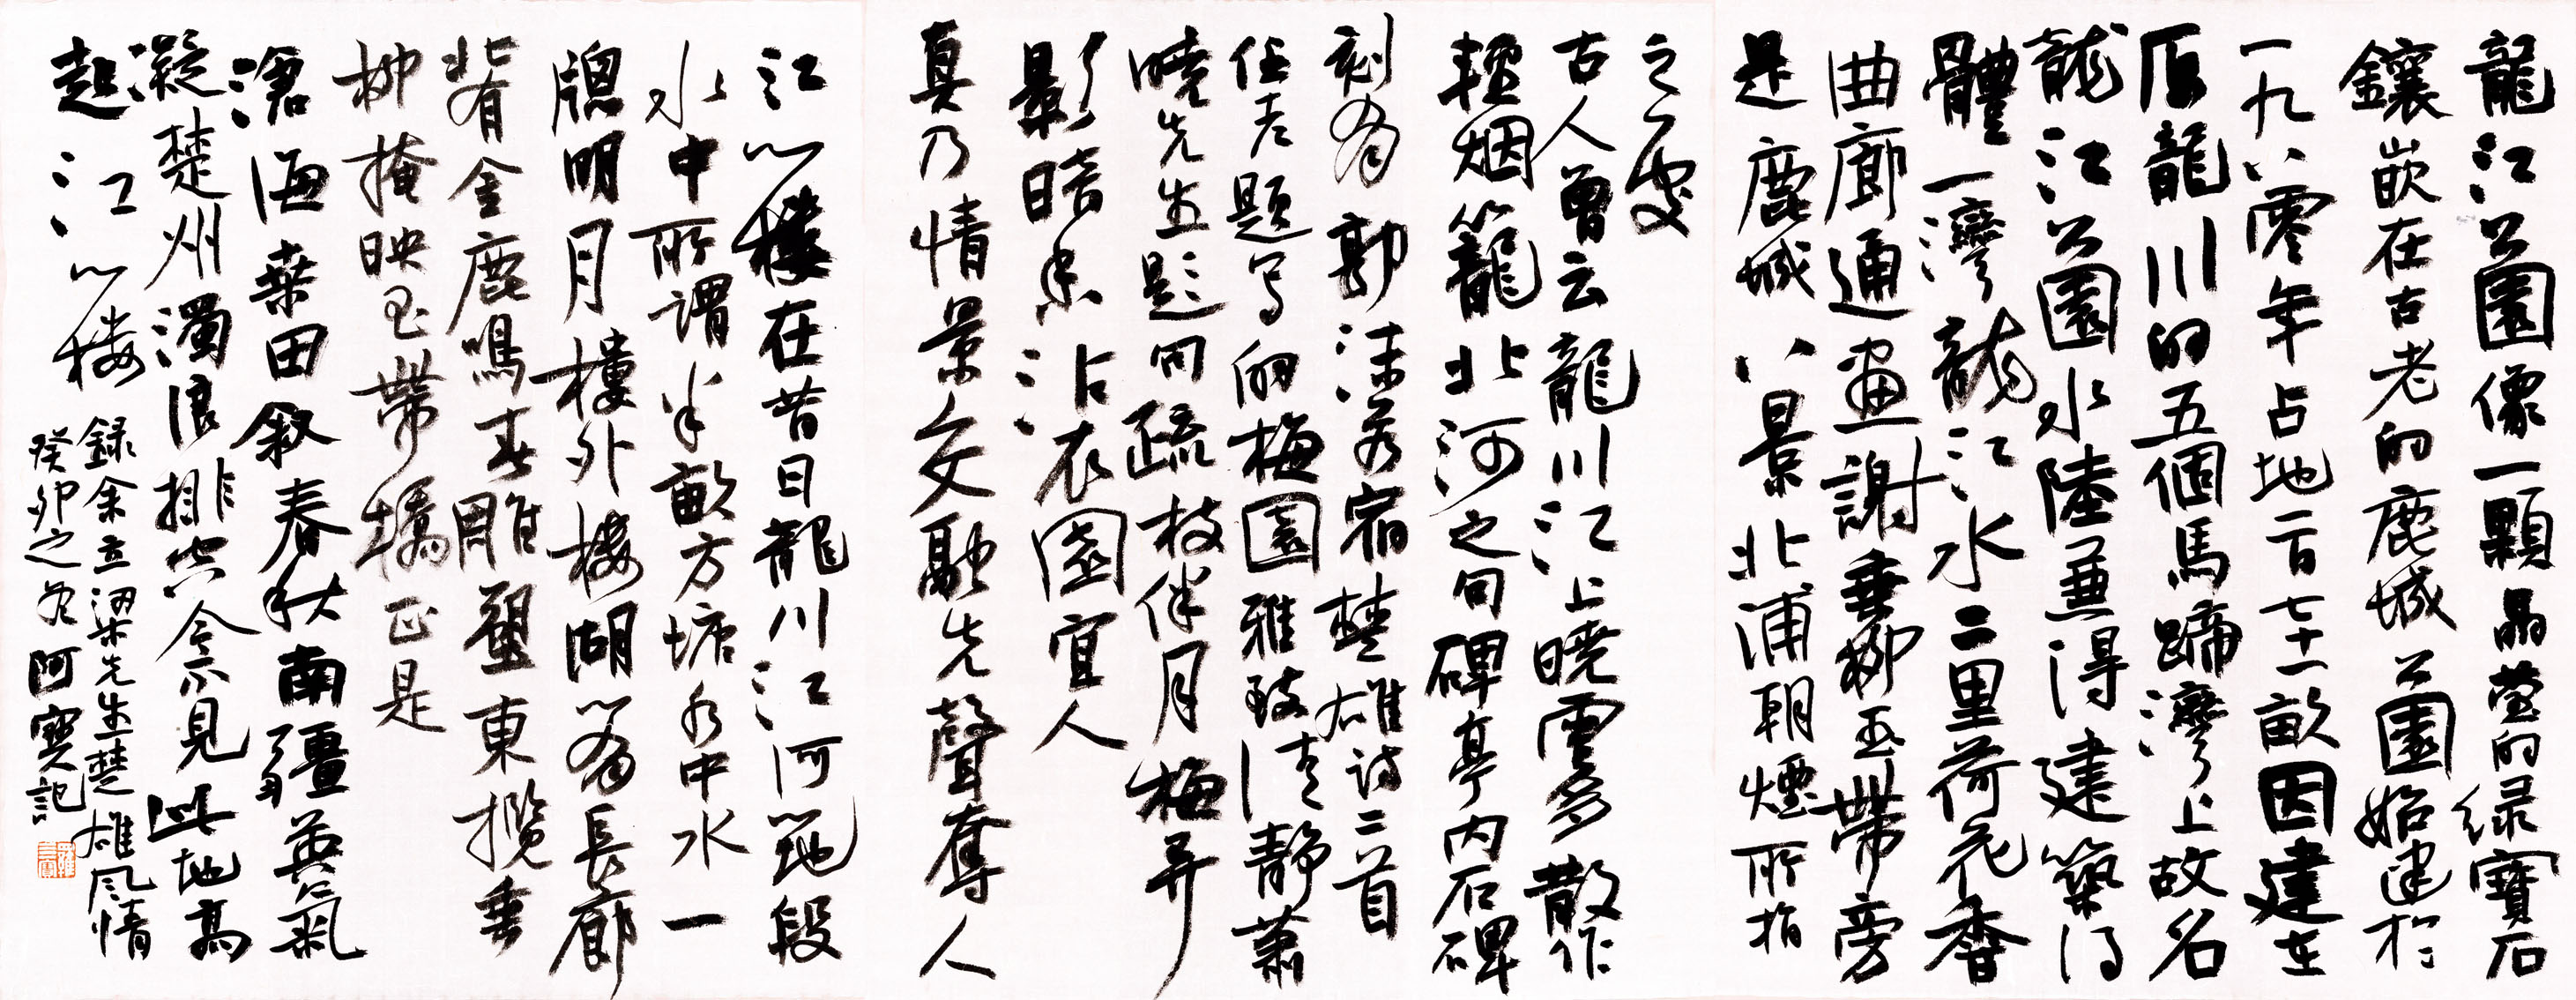 龍江公園像一顆晶瑩的绿寶石
鑲嵌在古老的鹿城公園始建於
一九八零年占地二百七十一畝因建在
原龍川的五個馬蹄灣上故名
龍江公園水陸兼得建築得
體一灣龍江水二里荷花香
曲廊通画謝垂柳玉帶旁
是鹿城八景北浦朝煙所指
之一處
古人曾云龍川江上曉雲多散作
輕烟籠北河之句碑亭内石碑
刻有郭沫若宿楚雄诗二首
伍老題写的梅園雅致清静蕭
曉先生題句疏枝伴月梅弄
影暗香沾衣園宜人
真乃情景交融先聲奪人
江心樓在昔日龍川江河地段
水中所謂半畝方塘水中水一
牕明月樓外樓湖心有長廊
背有金鹿鳴春雕塑東攬垂
柳掩映玉帶橋正是
滄海桑田叙春秋南疆英氣
凝楚州濁浪排空今不見此地高
起江心樓
録余立梁先生楚雄風情
癸卯之冬阿寶記